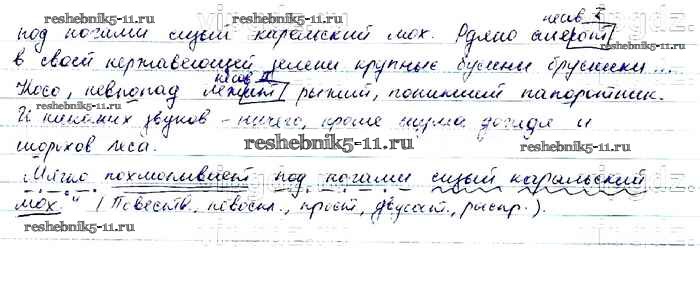 несов. I
под ногами сизый карельский мох. Рдяно алеют
в своей нержавеющей зелени крупные бусины брусники...
несов. II
Косо, невпопад лежит рыжий, поникший папоротник.
И никаких звуков – ничего, кроме шума дождя и
шорохов леса.
Мягко похмыкивает под ногами сизый карельский
мох." (Повеств., невоскл., прост., двусост., распр.).
reshebnik5-11.ru
reshebnik5-11.ru
reshebnik5-11.ru
reshebnik5-11.ru
reshebnik5-11.ru
reshebnik5-11.ru
reshebnik5-11.ru
reshebnik5-11.ru